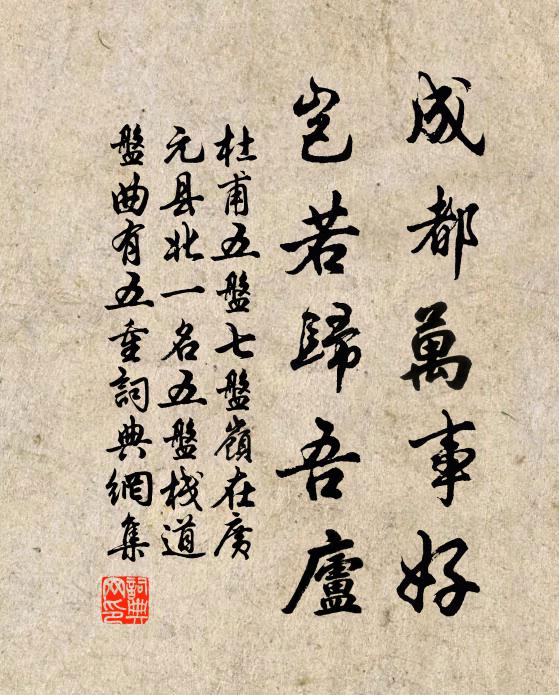 成都萬事好
豈若歸吾廬
杜甫五盤七盤嶺在廣
元县北一名五盤栈道
盤曲有五重詞典網集
詞典網印